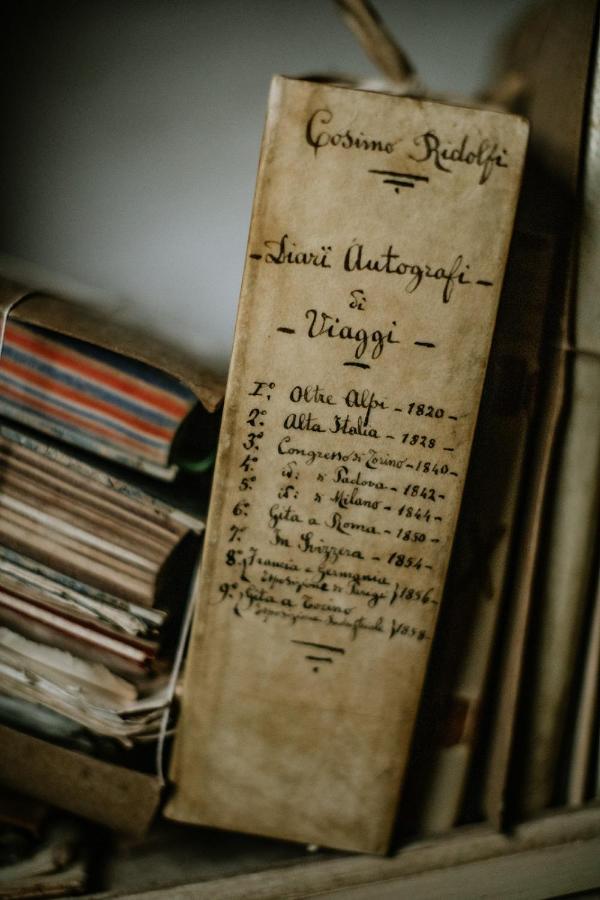 Cosimo Ridolfi
- Diarï Autografi -
di
- Viaggi -
1º. Oltre Alpi - 1820 -
2º. Alta Italia - 1828 -
3º. Congresso di Torino - 1840 -
4º. id: di Padova - 1842 -
5º. id: di Milano - 1844 -
6º. Gita a Roma - 1850 -
7º. In Svizzera - 1854 -
8º. Francia e Germania
Esposizione di Parigi } 1856 -
9º. Gita a Torino
Esposizione Industriale } 1858 -